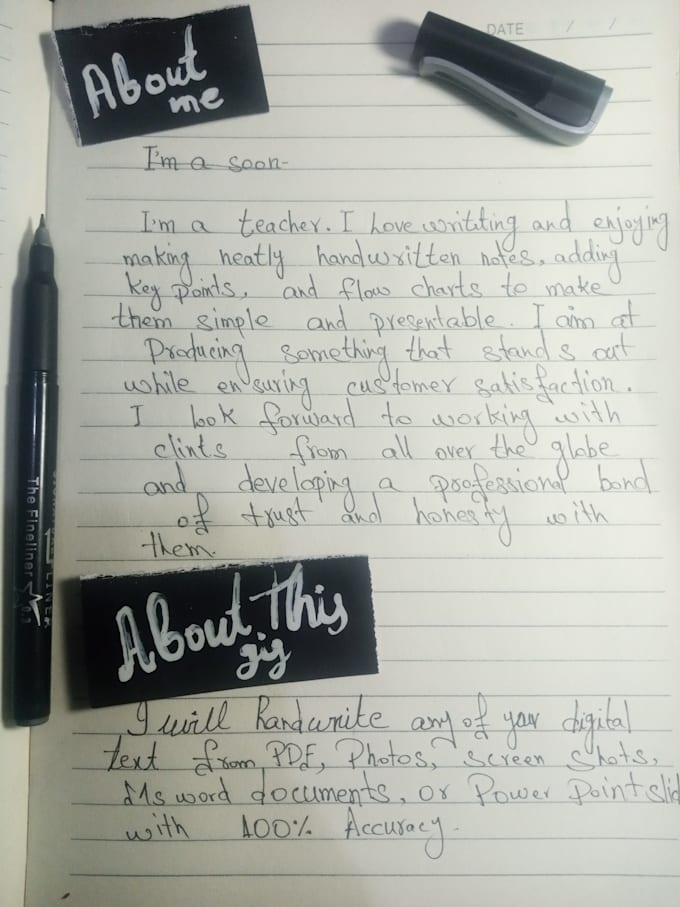 DATE / /
About
me
I'm a soon-
I'm a teacher. I love writting and enjoying
making neatly handwritten notes, adding
key points, and flow charts to make
them simple and presentable. I aim at
Producing something that stands out
while ensuring customer satisfaction.
I look forward to working with
clints from all over the globe
and developing a professional bond
of trust and honesty with
them.
The Fineliner
About This
gig
I will handwrite any of your digital
text from PDF, Photos, screen shots,
Ms word documents, or Power Point slid
with 100% Accuracy.